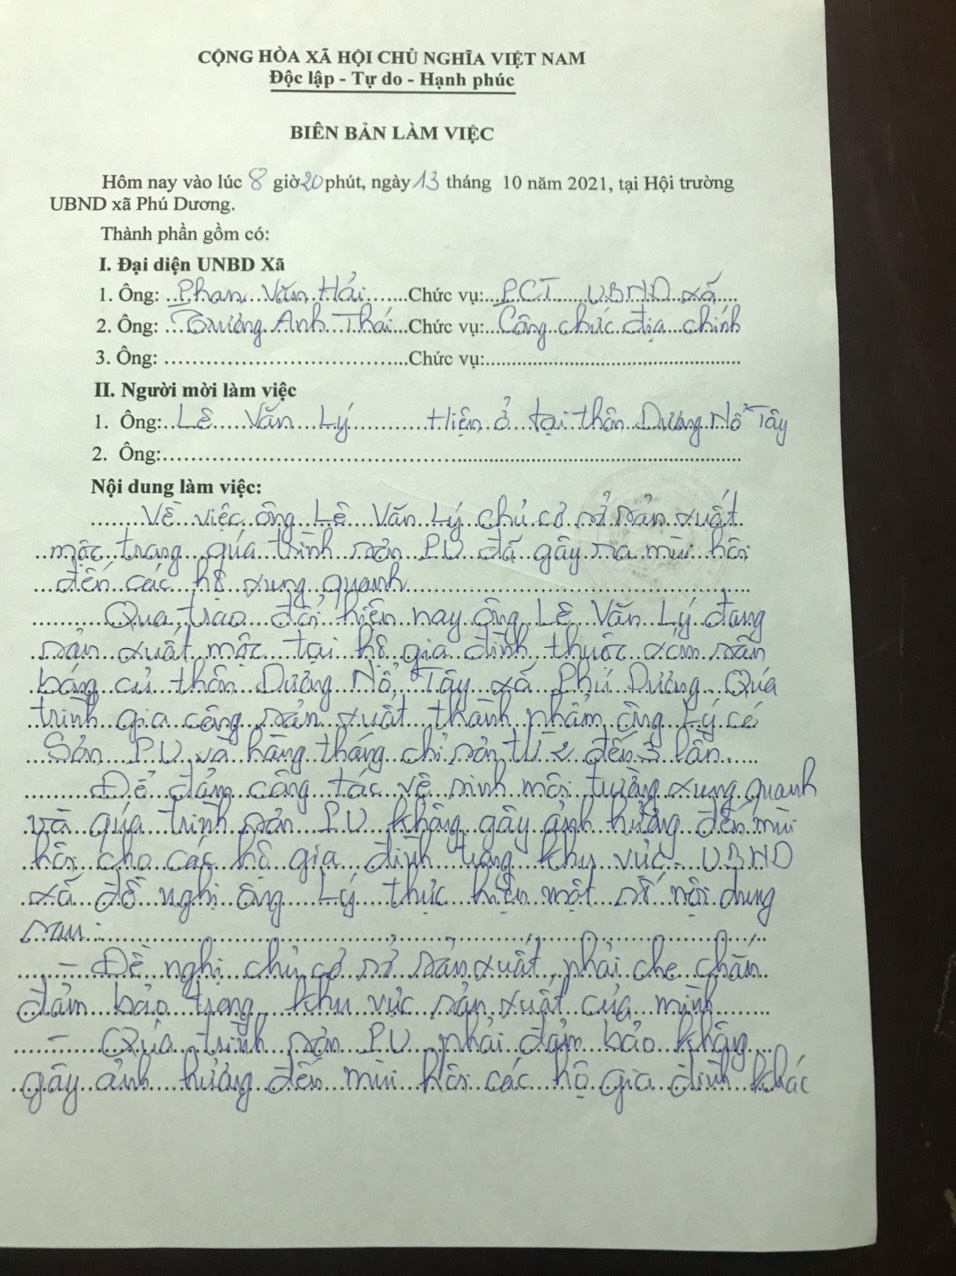 CỘNG HÒA XÃ HỘI CHỦ NGHĨA VIỆT NAM
Độc lập - Tự do - Hạnh phúc
BIÊN BẢN LÀM VIỆC
Hôm nay vào lúc 8 giờ 20 phút, ngày 13 tháng 10 năm 2021, tại Hội trường
UBND xã Phú Dương.
Thành phần gồm có:
I. Đại diện UNBD Xã
1. Ông: Phan Văn Hải Chức vụ: PCT UBND xã
2. Ông: Trương Anh Thái Chức vụ: Công chức địa chính
3. Ông: Chức vụ:
II. Người mời làm việc
1. Ông: Lê Văn Lý Hiện ở tại thôn Dương Nổ Tây
2. Ông:
Nội dung làm việc:
Về việc ông Lê Văn Lý chủ cơ sở sản xuất
mộc trong quá trình sơn PU đã gây ra mùi hôi
đến các hộ xung quanh
Qua trao đổi hiện nay ông Lê Văn Lý đang
sản xuất mộc tại hộ gia đình thuộc xóm sân
bóng cũ thôn Dương Nổ Tây xã Phú Dương. Quá
trình gia công sản xuất thành phẩm ông Lý có
Sơn PU và hàng tháng chỉ sơn từ 2 đến 3 lần
Để đảm công tác vệ sinh môi trường xung quanh
và quá trình sơn PU không gây ảnh hưởng đến mùi
hôi cho các hộ gia đình trong khu vực. UBND
xã đề nghị ông Lý thực hiện một số nội dung
sau:
- Đề nghị chủ cơ sở sản xuất phải che chắn
đảm bảo trong khu vực sản xuất của mình
- Quá trình sơn PU phải đảm bảo không
gây ảnh hưởng đến mùi hôi các hộ gia đình khác